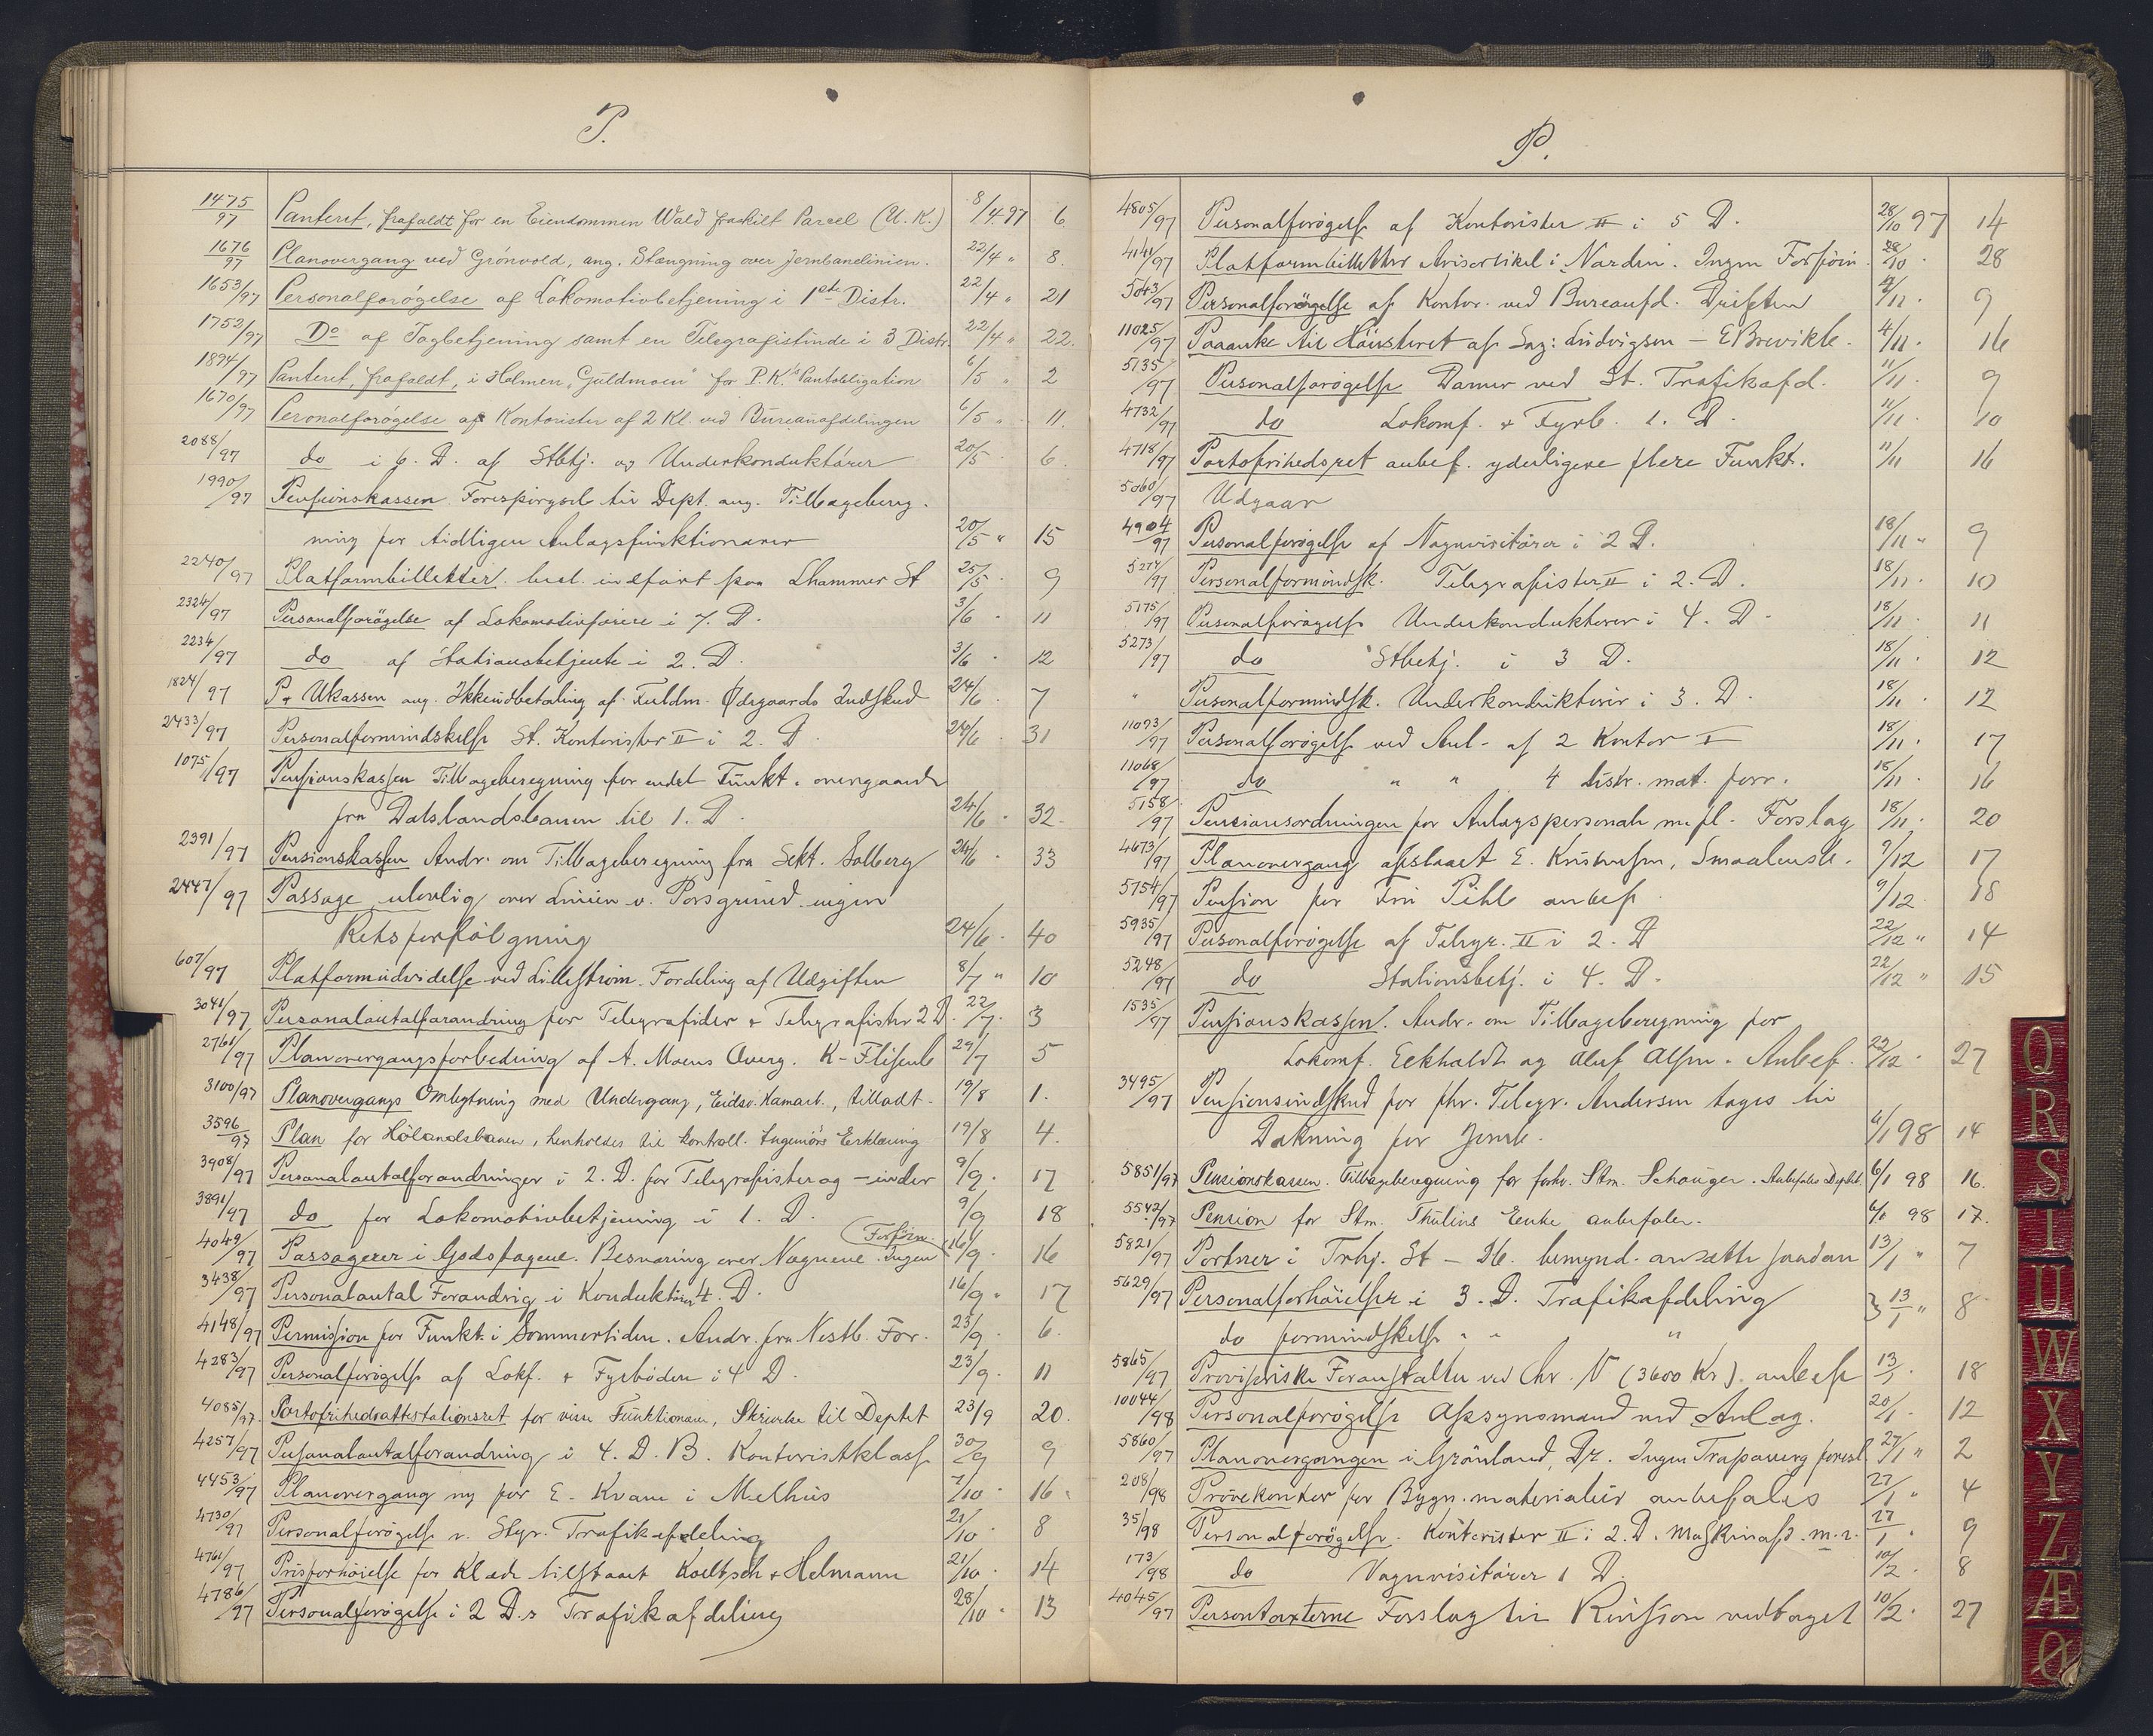 P.
1475/97 Panteret, frafaldt for en Eiendommen Wald fraskilt Parcel (U.K.) 8/4 97 6
1676/97 Planovergang ved Grönvold, ang. Stængning over Jernbanelinien. 22/4 " 8.
1653/97 Personalforögelse af Lokomotivbetjening i 1ste Distr. 22/4 " 21
1752/97 Do af Togbetjening samt en Telegrafistinde i 3 Distr. 22/4 " 22.
1894/97 Panteret, frafaldt, i Holmen "Guldmoen" for P.K.s Pantobligation 6/5 " 2
1670/97 Peronalforögelse af Kontorister af 2 Kl. ved Bureauafdelingen 6/5 " 11.
2088/97 do i 6. D. af Stbtj. og Underkonduktörer 20/5 6.
1990/97 Pensionskassen Forespörgsel til Dept. ang. Tilbagebereg-
ning for tidligere Anlægsfunktionærer 20/5 " 15
2240/97 Platformbilletter besl. indfört paa Lhammer St 25/5 . 9
2324/97 Personalforögelse af Lokomotivförere i 7. D. 3/6 . 11
2234/97 do af Stationsbetjente i 2. D. 3/6 . 12
1824/97 P + Ukassen ang. Ikkeudbetaling af Fuldm. Ødegaards Indskud 24/6 . 7
2433/97 Personalformindskelse St. Kontorister II i 2. D. 24/6 . 31
1075/97 Pensionskassen Tilbageberegning for endel Funkt. overgaaede
fra Dalslandsbanen til 1. D. 24/6 . 32.
2391/97 Pensionskassen Andr. om Tilbageberegning fra Sekt. Solberg 24/6 . 33
2447/97 Passage, ulovlig over Linien v. Porsgrund ingen
Retsforfölgning 24/6 . 40
607/97 Platformudvidelse ved Lilleström. Fordeling af Udgiften 8/7 " 10
3041/97 Personalantalforandring for Telegrafider + Telegrafister 2 D. 22/7 . 3
2761/97 Planovergangsforbedring af A. Moens Overg. K-Flisenb 29/7 5
3100/97 Planovergangs Ombygtning med Undergang, Eidsv. Hamarb., tilladt. 19/8 1.
3596/97 Plan for Hölandsbanen, henholdes til Kontroll. Ingeniörs Erklæring 19/8 4.
3908/97 Personalantalforandringer i 2. D. for Telegrafister og -inder 9/9 . 17
3891/97 do for Lokomotivbetjening i 1. D. 9/9 18
4049/97 Passagerer i Godstogene. Besværing over Vognene. Ingen Forföin. 16/9 . 16
3438/97 Personalantal Forandrig i Konduktörer 4. D. 16/9 . 17
4148/97 Permission for Funkt. i Sommertiden. Andr. fra Nestb. For. 23/9 . 6.
4283/97 Personalforögelse af Lokf. + Fyrbödere i 4 D. 23/9 . 11
4085/97 Portofrihedsattestationsret for visse Funktionær, Skrivelse til Deptet 23/9 20.
4257/97 Personalantalforandring i 4. D. B. Kontoristklasse 30/9 9
4453/97 Planovergang ny for E. Kvam i Melhus 7/10 . 16.
4730/97 Personalforögelse v. Styr. Trafikafdeling 21/10 . 8
4761/97 Prisforhöielse for Klæde tilstaaet Koeltzsch + Helmann 21/10 . 14
4786/97 Personalforögelse i 2 D.s Trafikafdeling 28/10 . 13
P.
4805/97 Personalforögelse af Kontorister II i 5 D. 28/10 97 14
4141/97 Platformbilletter Avisartikel i Nordin. Ingen Forföin. 28/10 . 28
5043/97 Personalforögelse af Kontor. ved Bureaufd. Driften 4/11 . 9
11025/97 Paaanke til Höiesteret af Sag: Ludvigsen - E Brevikb. 4/11 . 16
5135/97 Personalforögelse Damer ved St. Trafikafd. 11/11 . 9
4732/97 do Lokomf. + Fyrb. 1. D. 11/11 . 10
4718/97 Portofrihedsret anbef. yderligere flere Funkt. 11/11 16
5060/97 Udgaar
4904/97 Personalforögelse af Vognvisitörer i 2 D. 18/11 . 9
5274/97 Personalformindsk. Telegrafister II i 2. D. 18/11 . 10
5175/97 Personalforögelse Underkonduktörer i 4. D. 18/11 . 11
5273/97 do Stbetj. i 3 D. 18/11 . 12
" Personalformindsk. Underkonduktörer i 3. D. 18/11 . 12
11093/97 Personalforögelse ved Anl. af 2 Kontor I 18/11 . 17
11068/97 do " " 4 Distr. mat. forv. 18/11 . 16
5158/97 Pensionsordningen for Anlægspersonale m.fl. Forslag 18/11 . 20
4673/97 Planovergang afslaaet E. Kristensen, Smaalensb. 9/12 17
5754/97 Pension for Fru Pihl anbef. 9/12 . 18
5935/97 Personalforögelse af Telegr. II i 2. D 22/12 " 14
5248/97 do Stationsbetj. i 4. D. 22/12 " 15
1535/97 Pensionskassen. Andr. om Tilbageberegning for
Lokomf. Eckholdt og Oluf Olsen. Anbef. 22/12 . 27
3495/97 Pensionsindskud for fhv. Telegr. Andersen tages til
Dækning for Jernb. 6/1 98 14
5851/97 Pensionskassen. Tilbageberegning for forhv. Stm. Schouger. Anbefales Deptet. 6/1 98 16.
5542/97 Pension for Stm. Thulins Enke anbefales. 6/1 98 17.
5821/97 Portner i Trhj. St - D6. bemynd. ansætte saadan 13/1 " 7
5629/97 Personalforhöielser i 3. D. Trafikafdeling } 13/1 " 8
do formindskelse " " "
5865/97 Provisoriske Foranstalter ved Chr. V (3600 Kr). anbef 13/1 . 18
10044/98 Personalforögelse Opsynsmand ved Anlæg. 20/1 . 12
5860/97 Planovergangen i Grönland, Dr. Ingen Trapoverg forest. 27/1 " 2
208/98 Prövekontor for Bygn.materialier anbefales 27/1 " 4
35/98 Personalforögelse. Kontorister II i 2. D. Maskinafd. m.v. 27/1 . 9
173/98 do Vognvisitörer 1 D. 10/2 . 8
4045/97 Persontaxterne Forslag til Revision vedtaget 10/2 . 27
Q
R
S
T
U
W
X
Y
Z
Æ
Ø